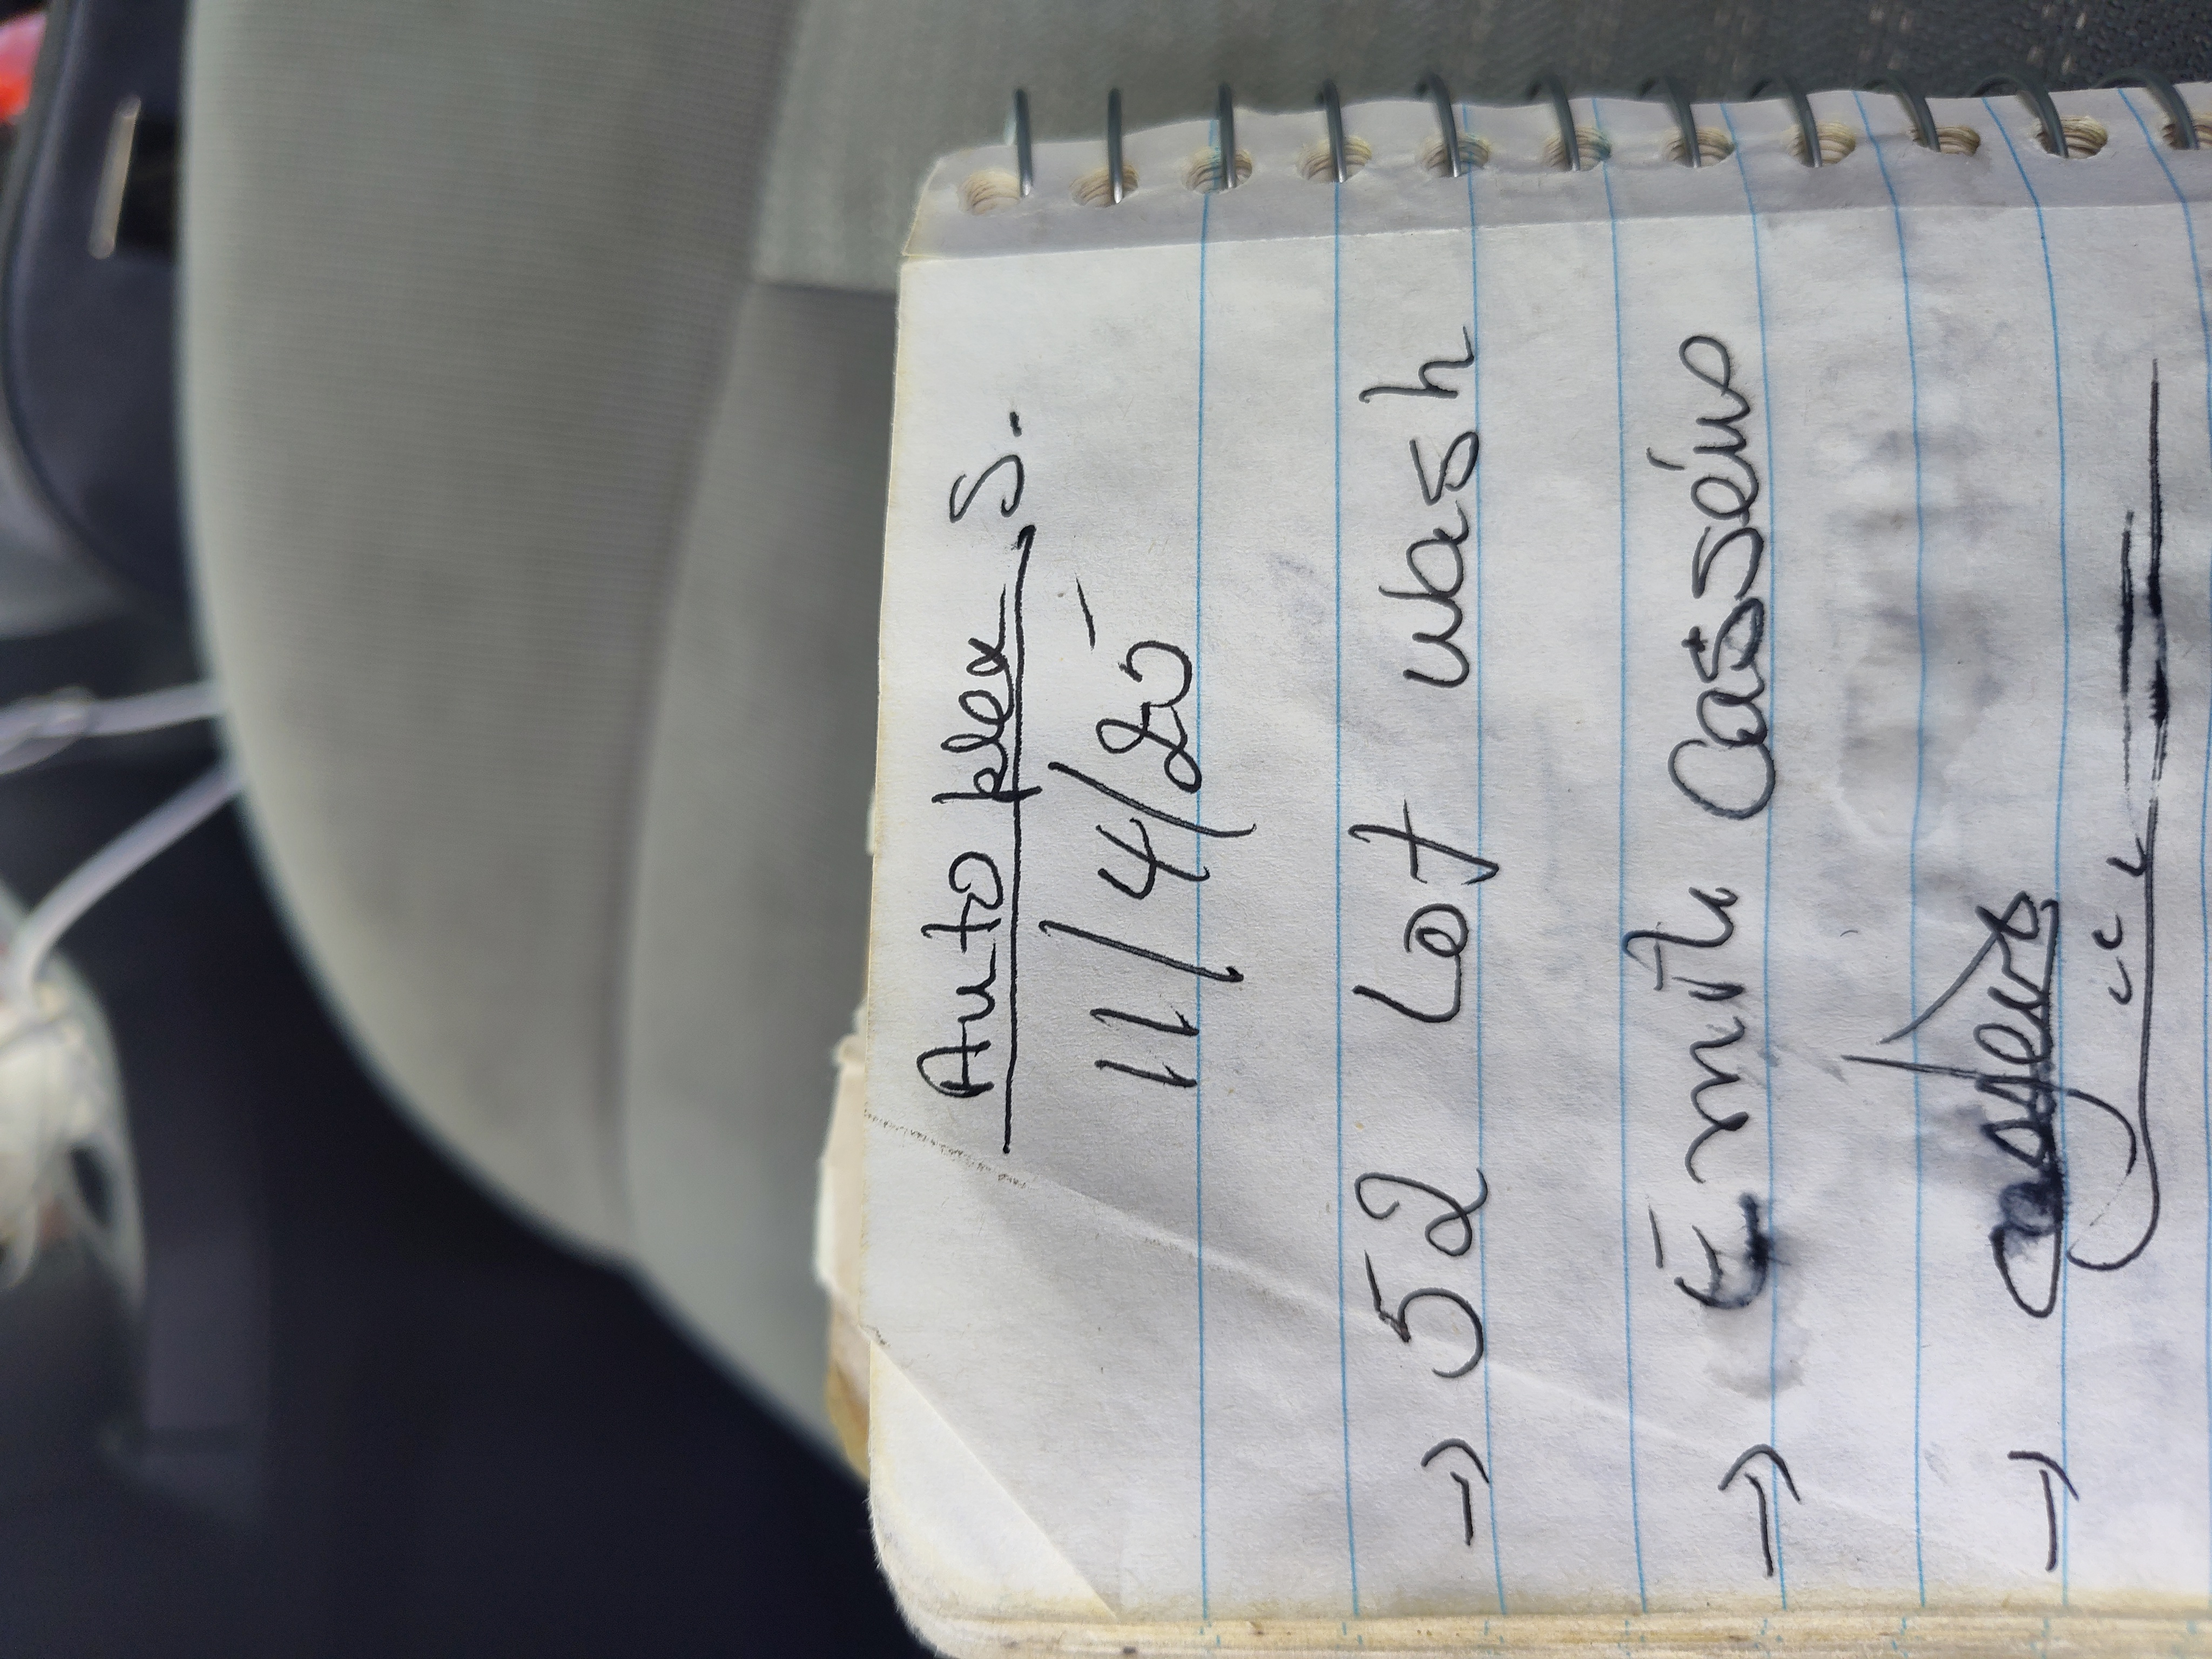 Auto plex S.
11/4/25
→ 52 Lot wash
→ Emile Casséus
→